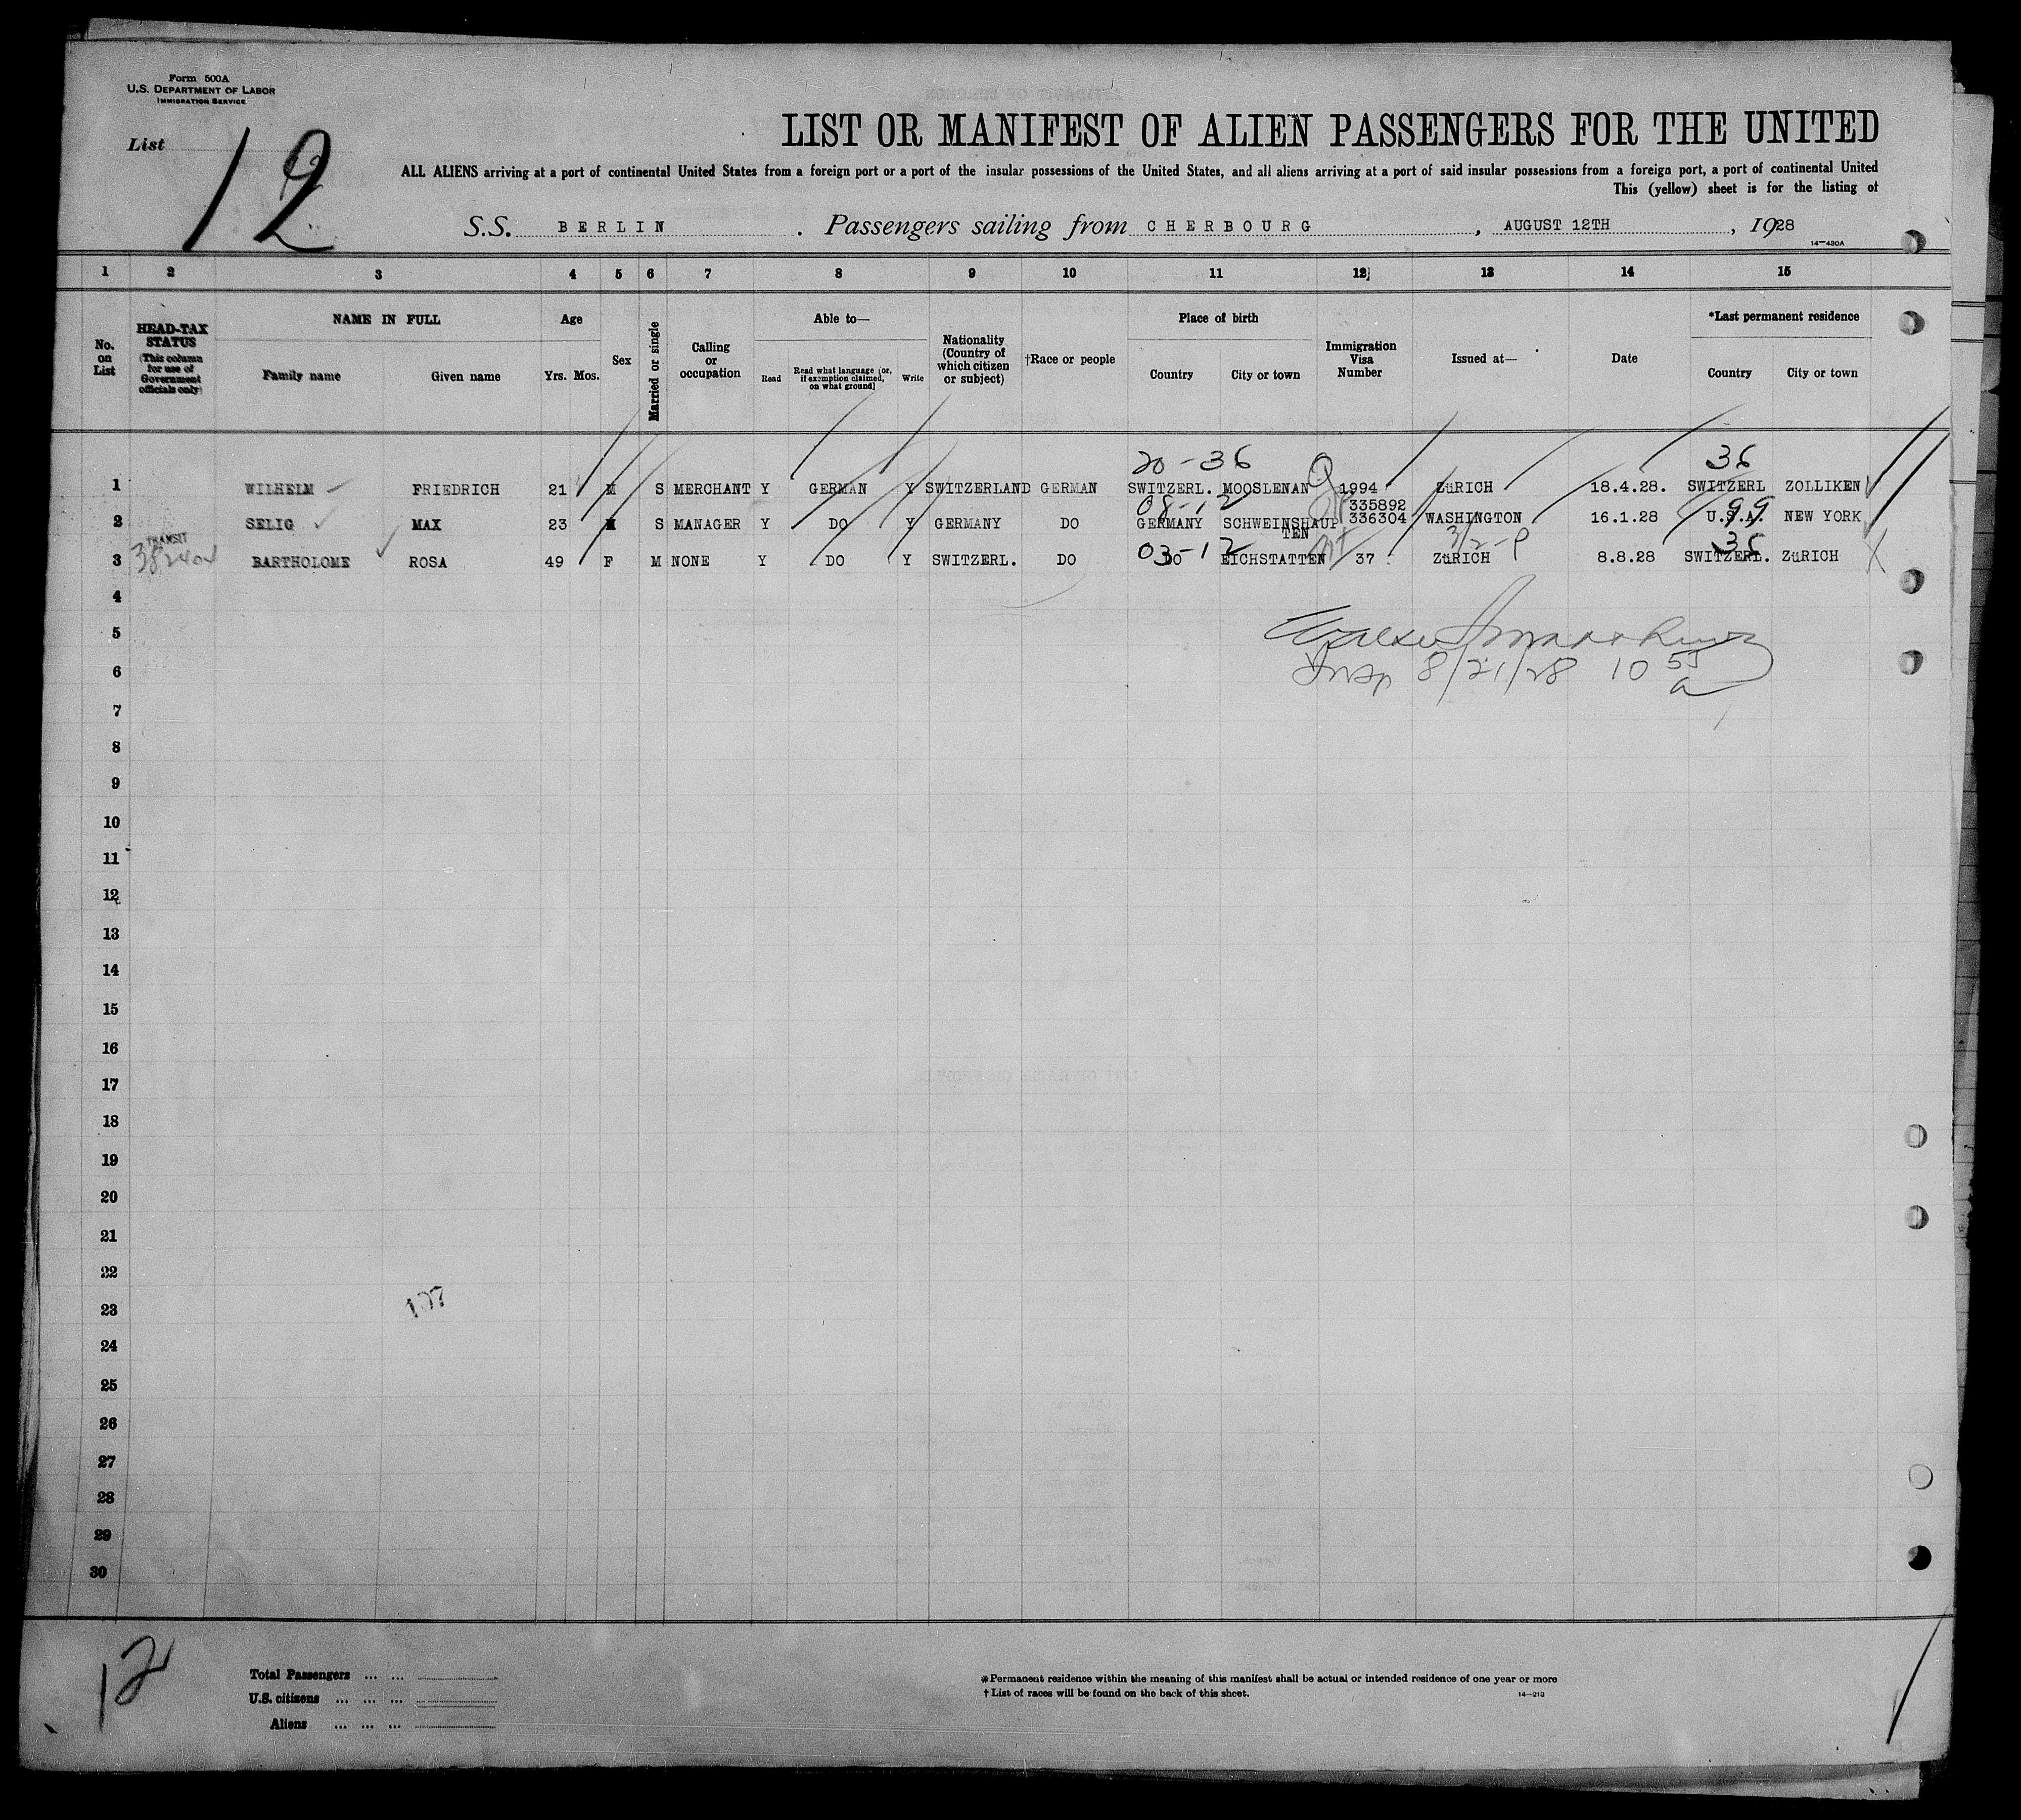 Form 500A
U.S. DEPARTMENT OF LABOR
IMMIGRATION SERVICE
List 12
LIST OR MANIFEST OF ALIEN PASSENGERS FOR THE UNITED
ALL ALIENS arriving at a port of continental United States from a foreign port or a port of the insular possessions of the United States, and all aliens arriving at a port of said insular possessions from a foreign port, a port of continental United
This (yellow) sheet is for the listing of
S.S. BERLIN . Passengers sailing from CHERBOURG , AUGUST 12TH , 1928
14—430A
1 2 3 4 5 6 7 8 9 10 11 12 13 14 15
No. on List
HEAD-TAX STATUS (This column for use of Government officials only)
NAME IN FULL
Family name Given name
Age
Yrs. Mos.
Sex
Married or single
Calling or occupation
Able to—
Read Read what language (or, if exemption claimed, on what ground) Write
Nationality (Country of which citizen or subject)
†Race or people
Place of birth
Country City or town
Immigration Visa Number
Issued at—
Date
*Last permanent residence
Country City or town
20-36 36
1 WILHELM FRIEDRICH 21 M S MERCHANT Y GERMAN Y SWITZERLAND GERMAN SWITZERL. MOOSLENAN 1994 ZüRICH 18.4.28. SWITZERL ZOLLIKEN
08-12 335892 99
2 SELIG MAX 23 M S MANAGER Y DO Y GERMANY DO GERMANY SCHWEINSHAUP 336304 WASHINGTON 16.1.28 U.S.A. NEW YORK
TEN
TRANSIT
03-12 3/2-P 36
3 BARTHOLOME ROSA 49 F M NONE Y DO Y SWITZERL. DO DO EICHSTATTEN 37 ZüRICH 8.8.28 SWITZERL. ZüRICH
4
5
6
Insp 8/21/28 10 55 a
7
8
9
10
11
12
13
14
15
16
17
18
19
20
21
22
23
24
25
26
27
28
29
30
12
Total Passengers ... ...
U.S. citizens ... ... ...
Aliens ... ... ...
*Permanent residence within the meaning of this manifest shall be actual or intended residence of one year or more
†List of races will be found on the back of this sheet.
14—213